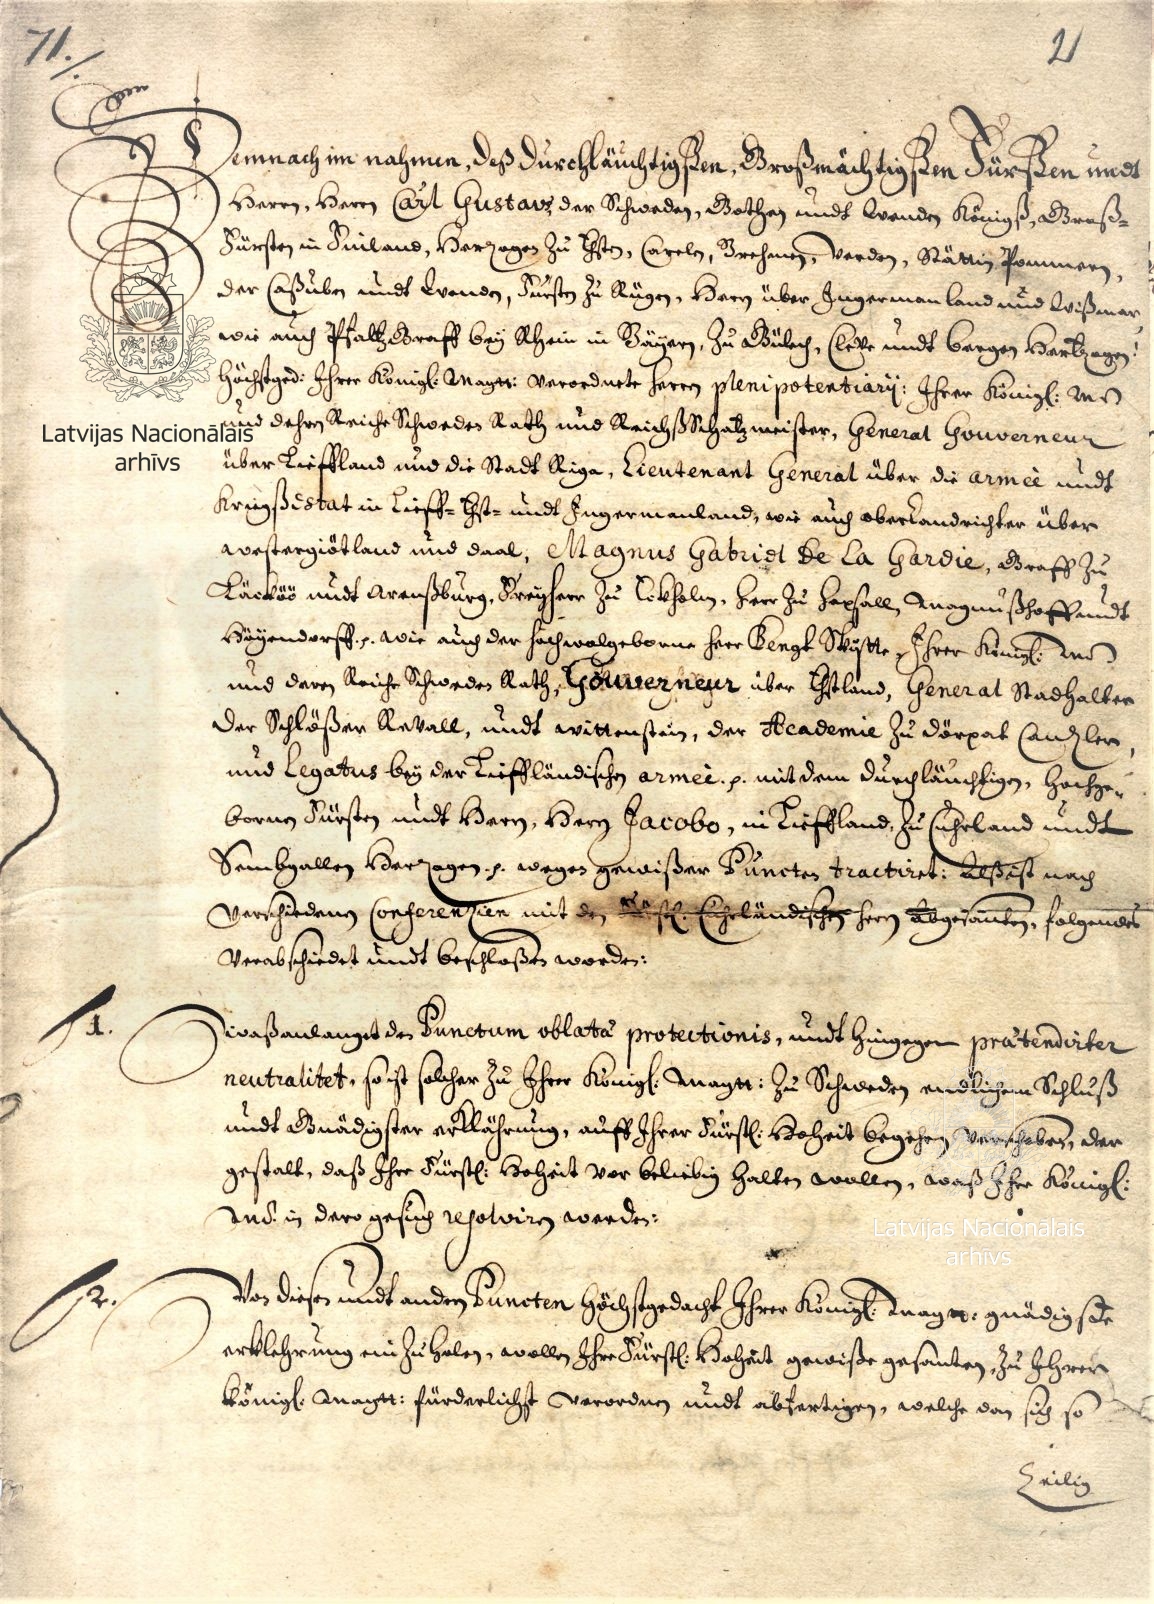 71./.
21
Demnach im nahmen, deß Durchläuchtigsten, Großmächtigsten Fürsten undt
Herrn, Herrn Carl Gustavs der Schweden, Gothen undt Wenden Königß, Groß-
Fürsten in Finland, Herzogen zu Ehsten, Carelen, Brehmen, Verden, Stättin Pommern,
der Caßuben undt Wenden, Fürsten zu Rügen, Herrn über Ingermanland und Wißmar,
wie auch Pfaltz Graff bey Rhein in Bäyern, zu Gülich, Cleve undt bergen Hertzogen:
Höchstged: Ihrer Königl: Maytt: verordnete herren plenipotentiarij: Ihrer Königl: M.
und dehro Reiche Schweden Rath und ReichßSchatzmeister, General Gouverneur
über Lieffland und die Stadt Riga, Lieutenant General über die armeè undt
Kriegßestat in Lieff- Ehst- undt Ingermanland, wie auch oberLandrichter über
westergiötland und daal, Magnus Gabriel De La Gardie, Graff zu
Läcköö undt Arenßburg, Freyherr zu Eckholm, herr zu hapsall, Magnußhoff undt
Höyendorff .p. wie auch der hochwolgeborne herr Bengt Skytte, Ihrer Königl: M.
und deren Reiche Schweden Rath, Gouverneur über Ehstland, General Stadhalter
der Schlößer Revall, undt wittenstein, der Academie zu dörpat Cantzler,
und Legatus bey der Liefländischen armeè .p. mit dem durchläuchtigen, hochge-
bornen Fürsten undt Herrn, Herrn Jacobo, in Lieffland, zu Cuhrland undt
Sembgallen Herzogen .p. wegen gewißer Puncten tractiret: Alß ist nach
verschiedenen Conferenzien mit den Fürstl: Churländischen herrn Abgesanten, folgendes
verabschiedet undt beschloßen worden:
1. waß anlanget den Punctum oblatæ protectionis, undt hingegen prætendirter
neutralitet, so ist solcher zu Ihrer Königl: Maytt: zu Schweden endlichem Schluß
undt Gnädigster erklährung, auff Ihrer Fürstl: Hoheit begehren verschoben, der
gestalt, daß Ihre Fürstl: Hoheit vor beliebig halten wollen, waß Ihre Königl:
M. in dero gesuch resolviren werden:
2. Von diesen undt andern Puncten Höchstgedacht Ihrer Königl: Maytt: gnädigste
erklehrung ein zu holen, wollen Ihre Fürstl: Hoheit gewiße gesanten, zu Ihrer
königl: Maytt: fürderlichst verordnen undt abfertigen, welche dan sich so
Latvijas Nacionālais
arhīvs
Latvijas Nacionālais
arhīvs